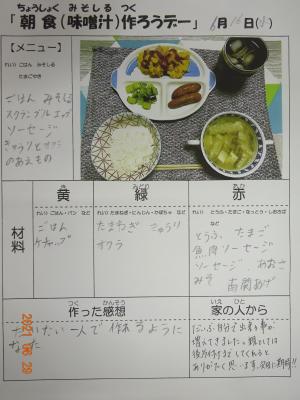 ちょうしょく みそしる つく
「朝食(味噌汁)作ろうデー」 6月 日( )
【メニュー】
れい) ごはん みそしる
たまごやき
ごはん みそしる
スクランブルエッグ
ソーセージ
きゅうりとオクラ
のあえもの
材料
き
黄
れい) ごはん・パン など
ごはん
ケチャップ
みどり
緑
れい) たまねぎ・にんじん・かぼちゃ など
たまねぎ きゅうり
オクラ
あか
赤
れい) とうふ・たまご・なっとう・しおさば など
とうふ たまご
魚肉ソーセージ
ソーセージ あおさ
みそ 南関あげ
つく かんそう
作った感想
だいたい一人で作れるように
なった
いえ ひと
家の人から
だいぶ自分で出来る事が
増えてきました。親としては
後片付けまでしてくれると
ありがたく思います。次回に期待!!
2021 06 29